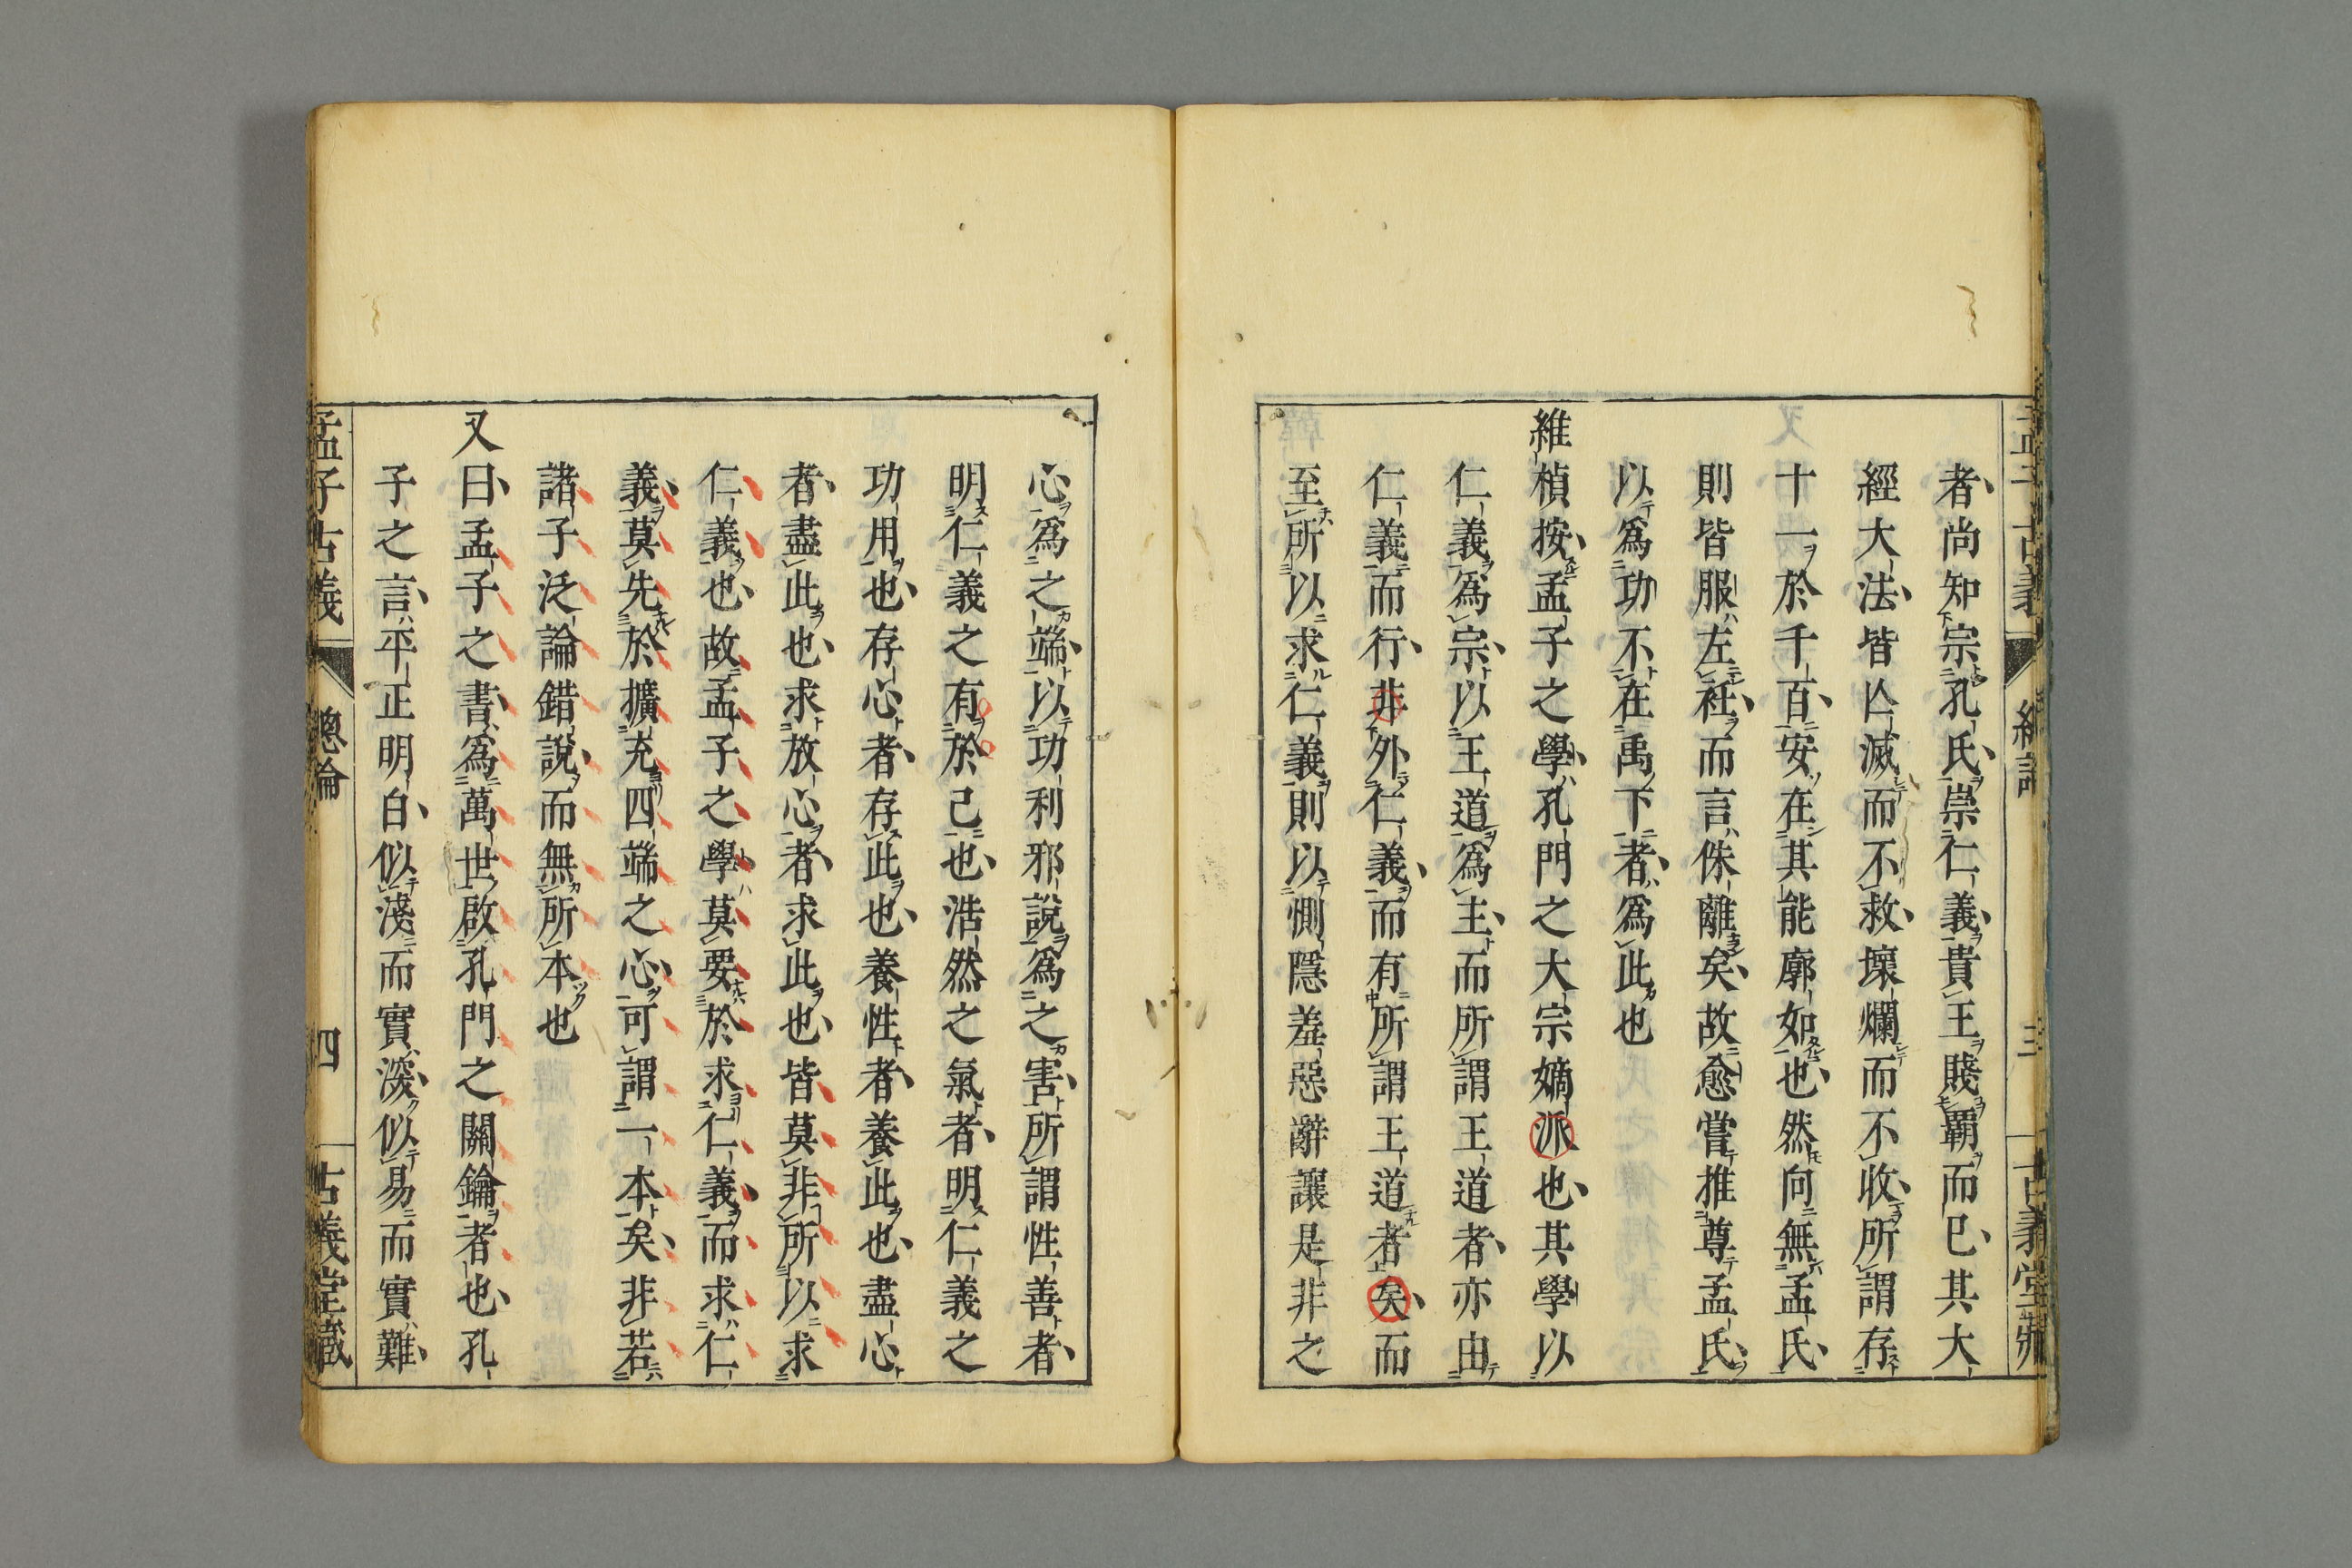 者尚知宗孔氏崇仁義貴王賤覇而已其大
經大法皆亾滅而不救壞爛而不收所謂存
十一於千百安在其能廓如也然向無孟氏
則皆服左衽而言侏離矣故愈嘗推尊孟氏
以爲功不在禹下者爲此也
維楨按孟子之學孔門之大宗嫡派也其學以
仁義爲宗以王道爲主而所謂王道者亦由
仁義而行非外仁義而有所謂王道者矣而
至所以求仁義則以惻隱羞惡辭讓是非之
孟子古義 總論 三 古義堂藏
心爲之端以功利邪說爲之害所謂性善者
明仁義之有於己也浩然之氣者明仁義之
功用也存心者存此也養性者養此也盡心
者盡此也求放心者求此也皆莫非所以求
仁義也故孟子之學莫要於求仁義而求仁
義莫先於擴充四端之心可謂一本矣非若
諸子泛論錯說而無所本也
又曰孟子之書爲萬世啟孔門之關鑰者也孔
子之言平正明白似淺而實深似易而實難
孟子古義 總論 四 古義堂藏